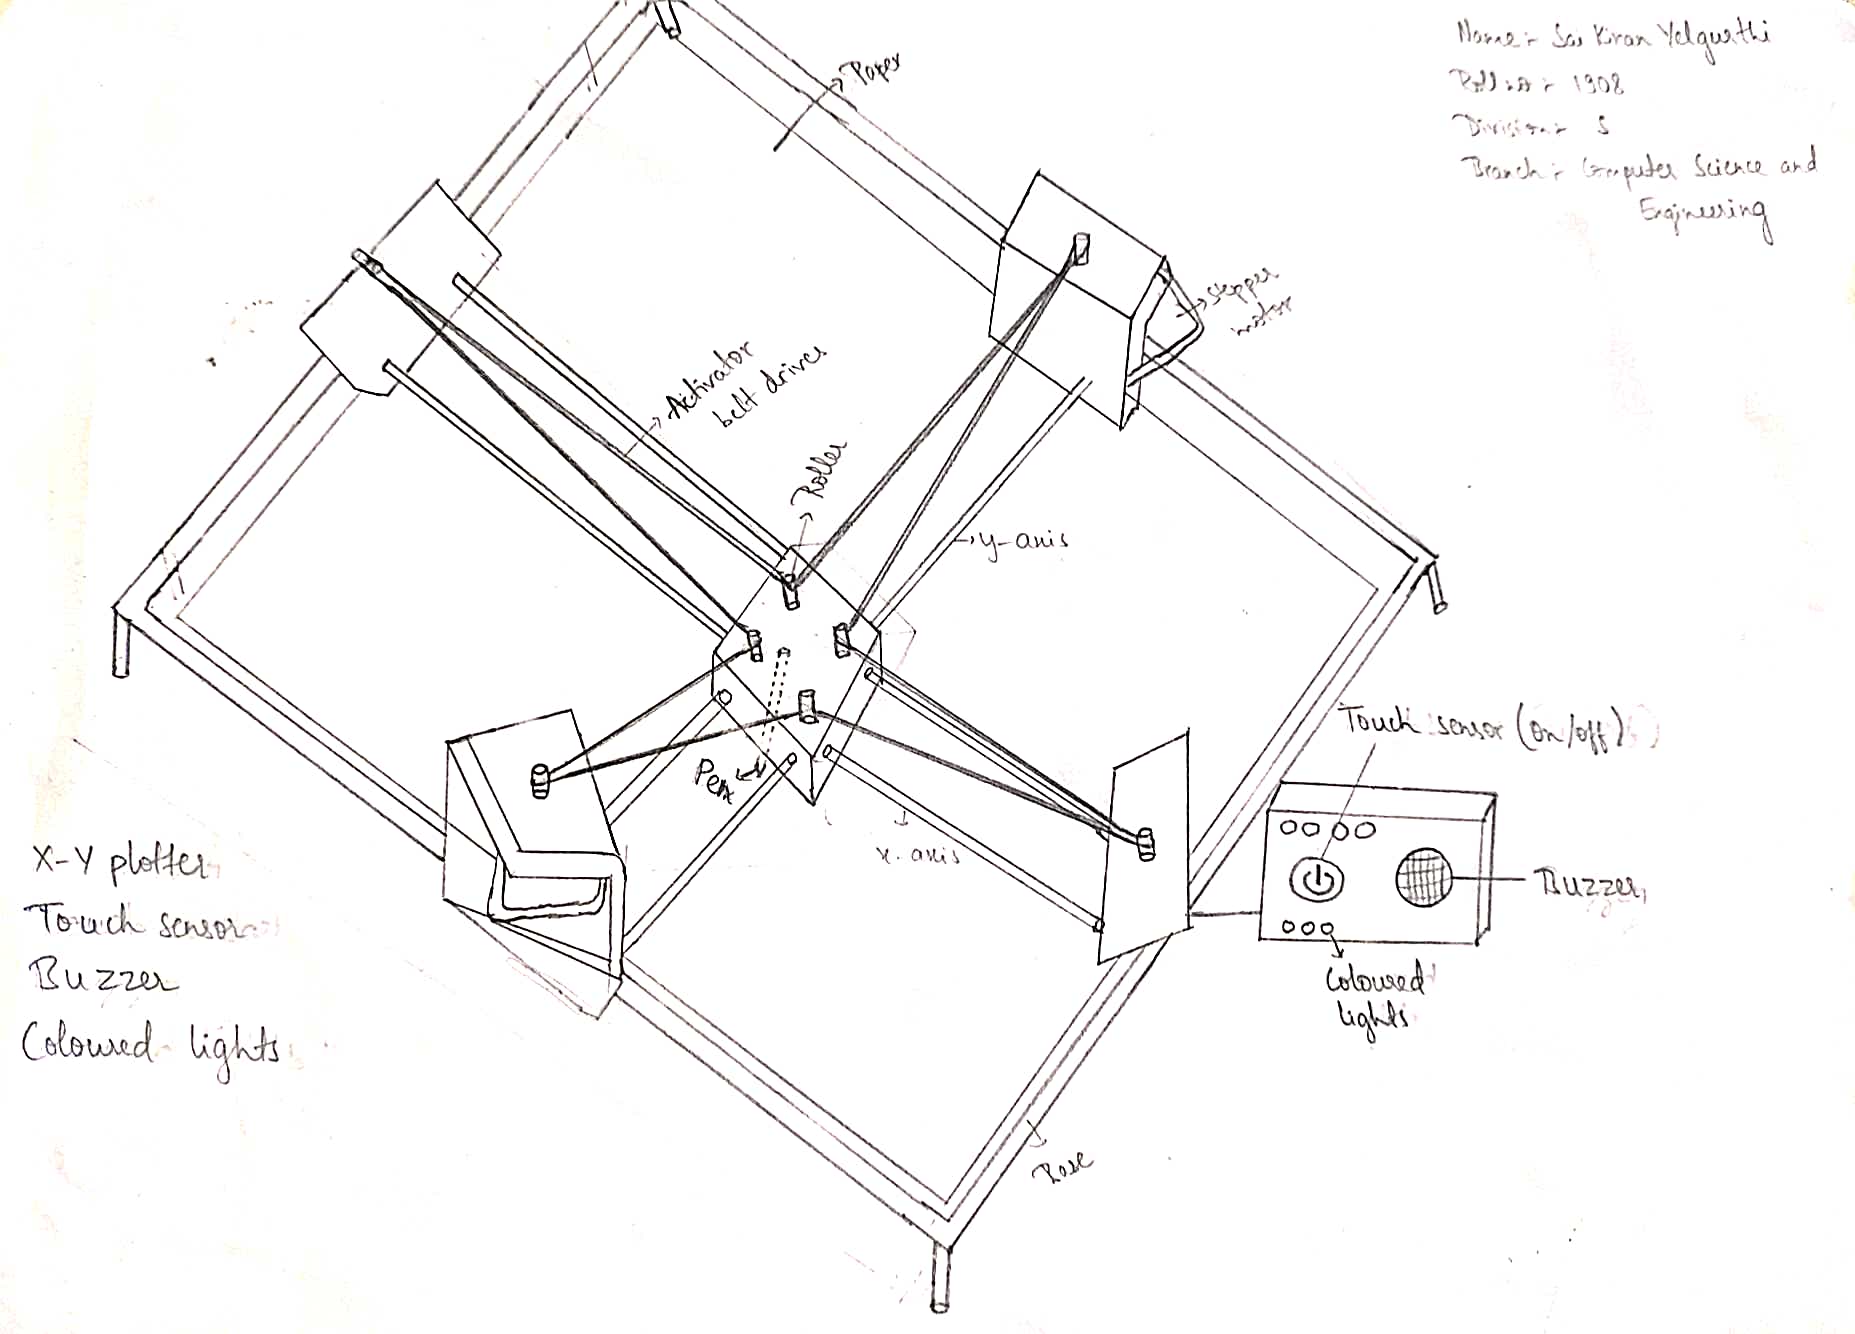 Name:- Sai Kiran Yelgurthi
Roll no:- 1908
Division:- S
Branch:- Computer Science and
Engineering
Paper
Stepper
motor
Activator
belt drives
Roller
y-axis
Touch sensor (on/off)
Pen
x-axis
X-Y plotter
Touch sensor
Buzzer
Coloured lights
Buzzer
Coloured
lights
Base